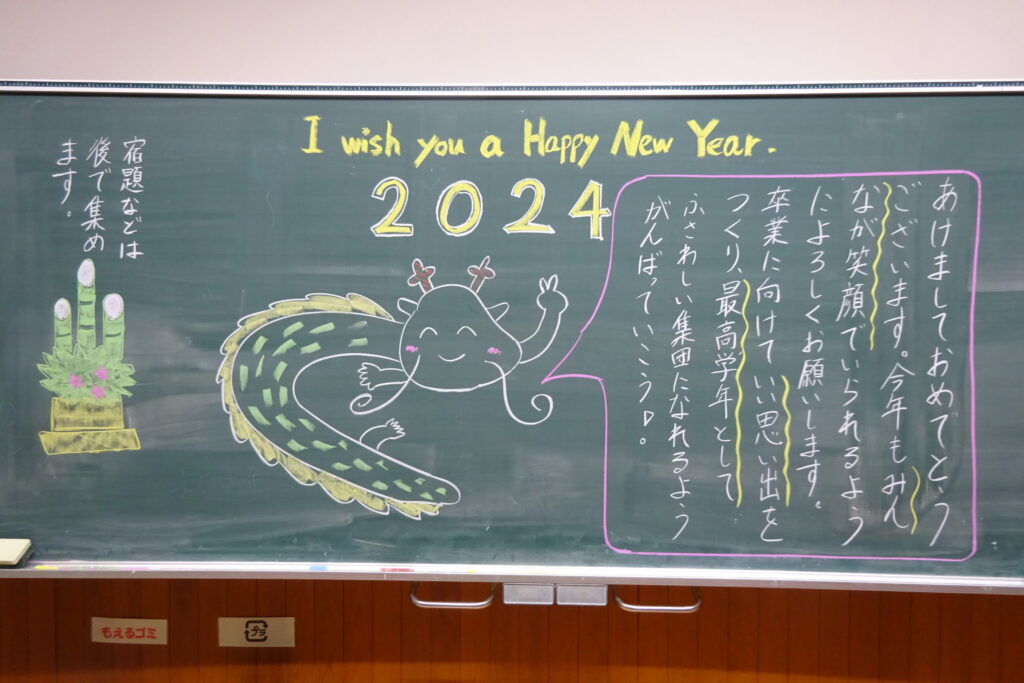 I wish you a Happy New Year.
2024
あけましておめでとう
ございます。今年もみん
なが笑顔でいられるよう
によろしくお願いします。
卒業に向けていい思い出を
つくり、最高学年として
ふさわしい集団になれるよう
がんばっていこう!。
宿題などは
後で集め
ます。
もえるゴミ
プラ